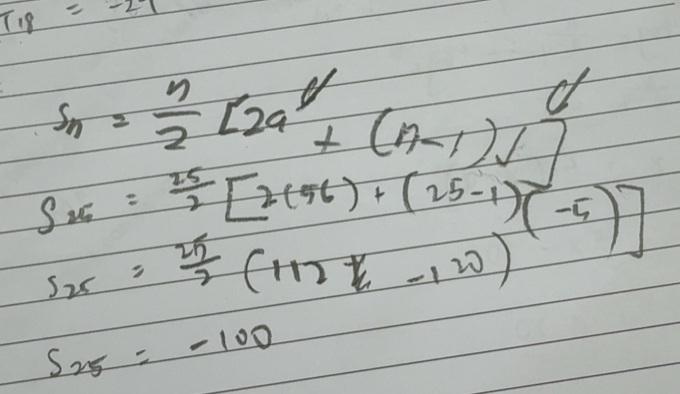 T₁₈ = -29
Sₙ = n/2 [2a + (n-1)d]
S₂₅ = 25/2 [2(56) + (25-1)(-5)]
S₂₅ = 25/2 (112 -120)
S₂₅ = -100